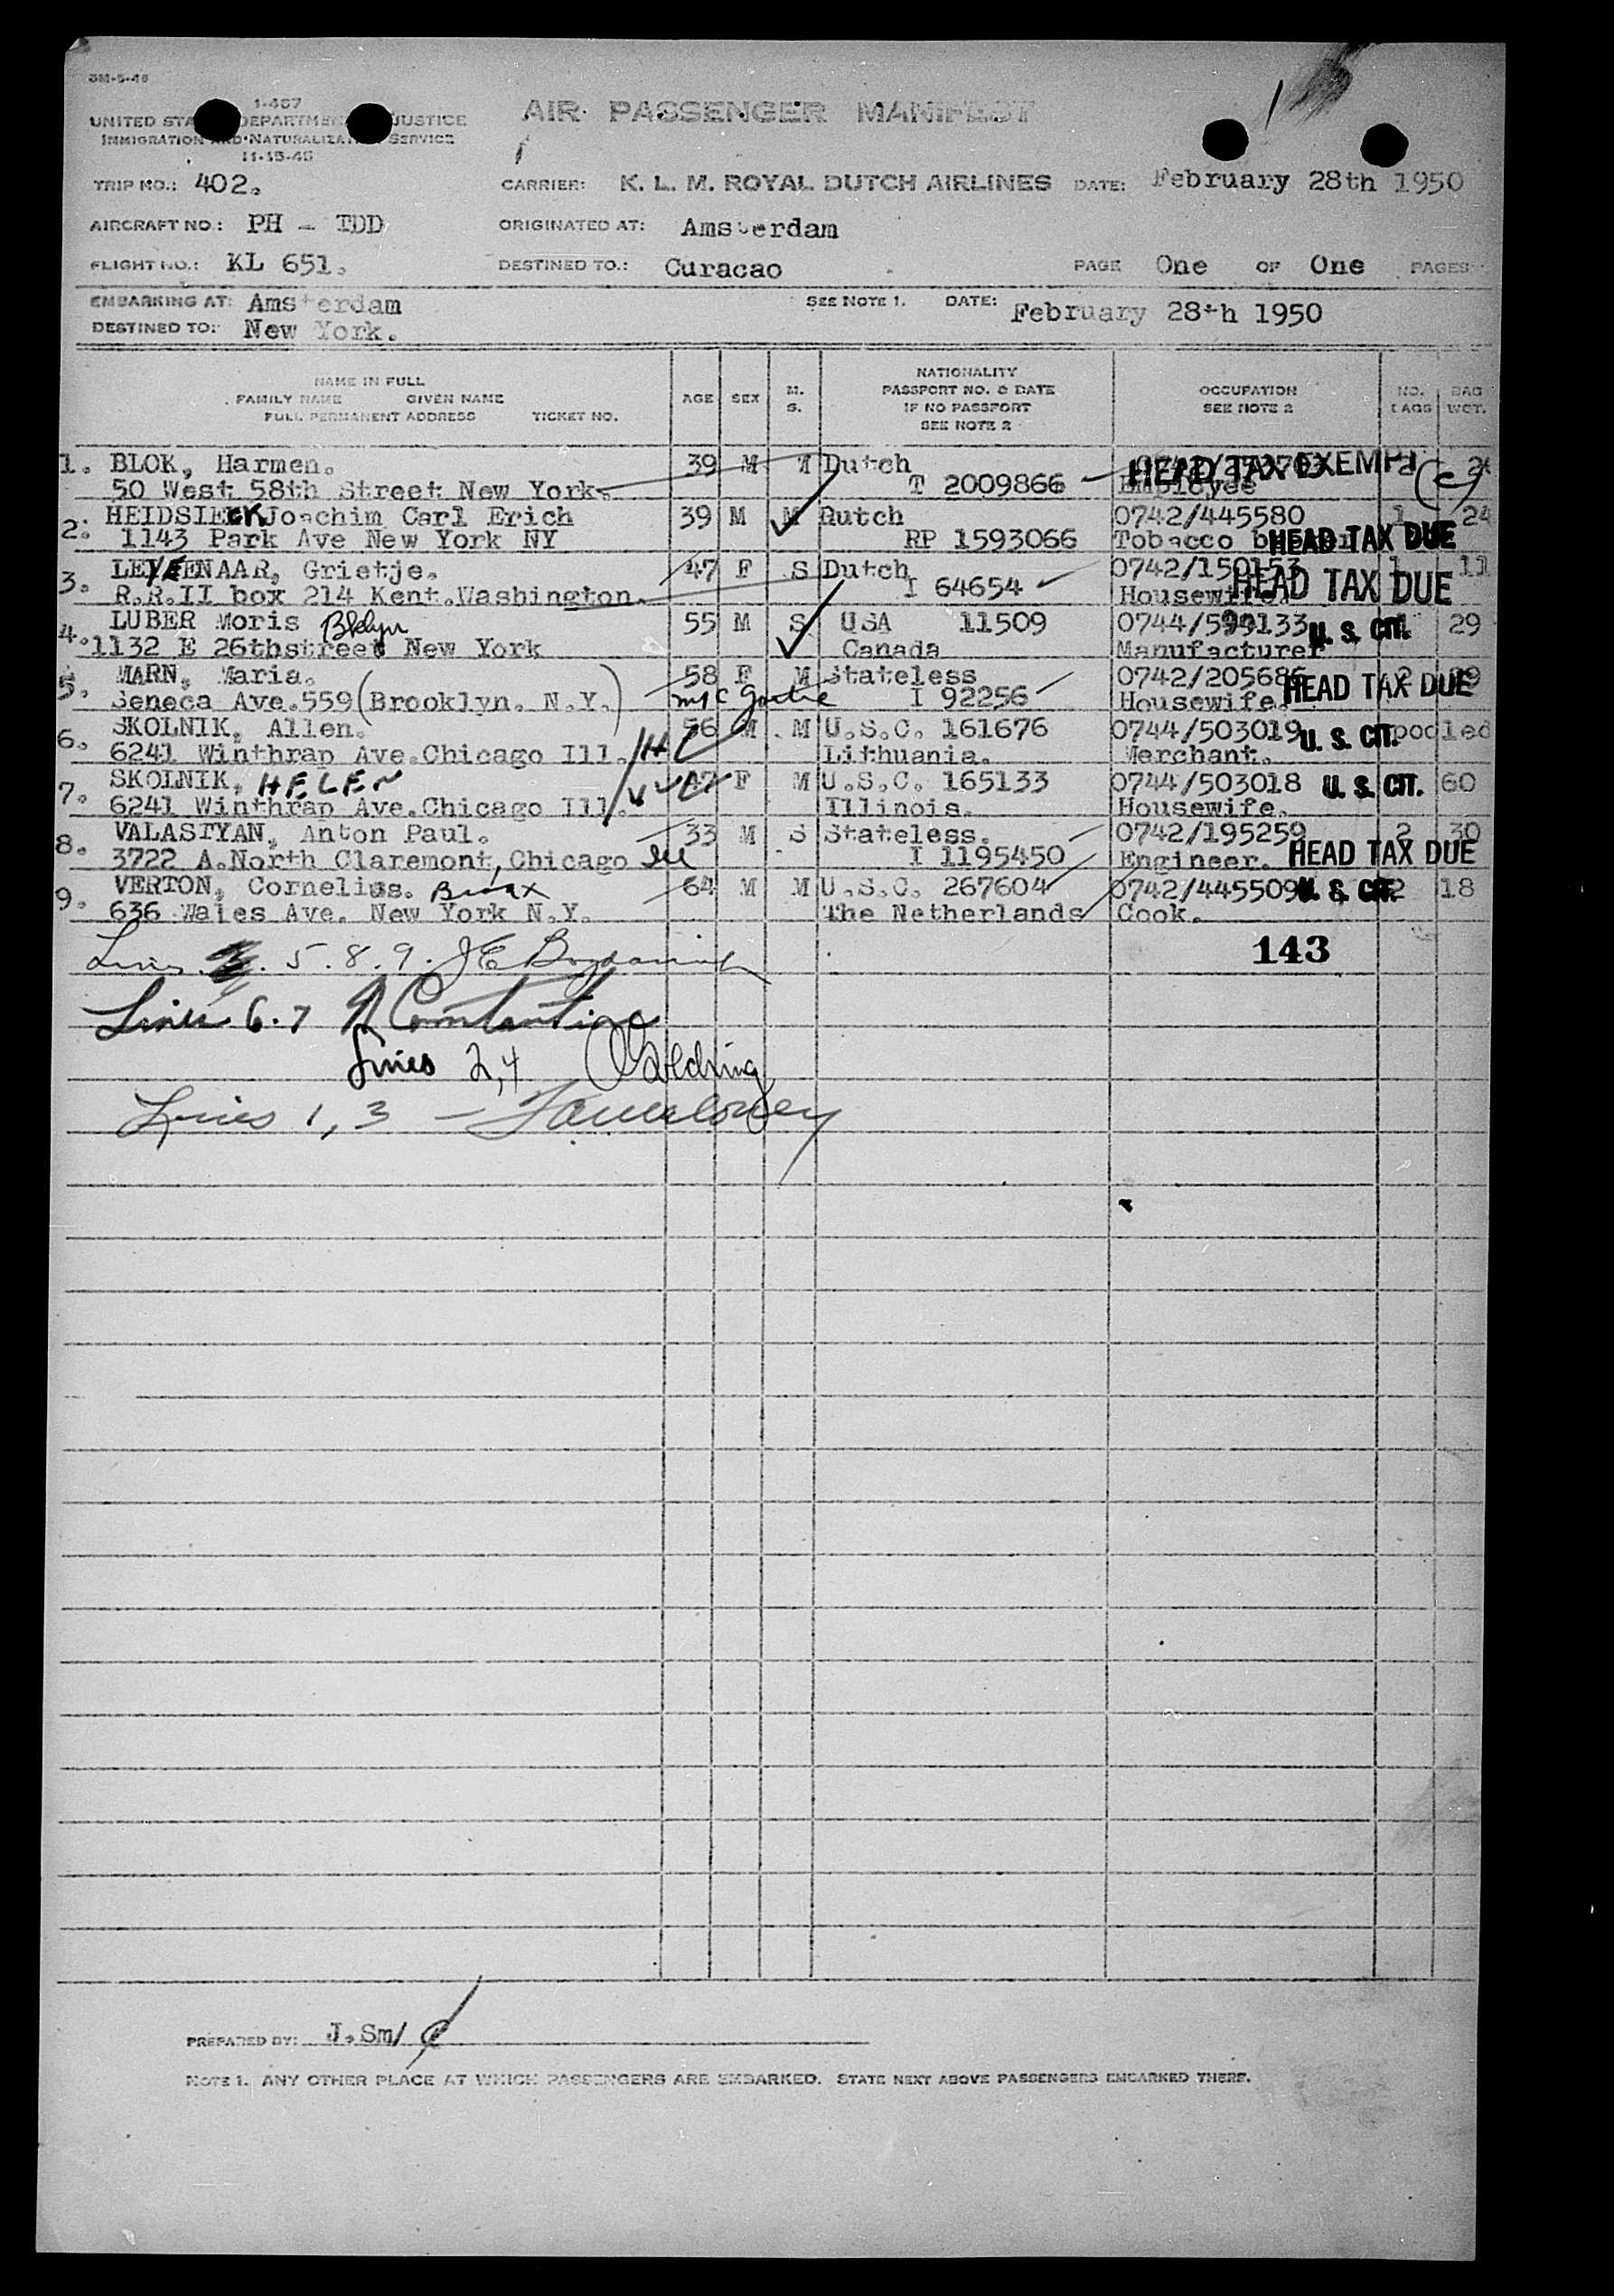 3M-5-48
1-467
UNITED STA DEPARTMEN JUSTICE
IMMIGRATION AND NATURALIZATION SERVICE
11-15-48
AIR PASSENGER MANIFEST
TRIP NO.: 402.
CARRIER: K. L. M. ROYAL DUTCH AIRLINES DATE: February 28th 1950
AIRCRAFT NO.: PH - TDD
ORIGINATED AT: Amsterdam
FLIGHT NO.: KL 651.
DESTINED TO.: Curacao
PAGE One OF One PAGES
EMBARKING AT: Amsterdam
SEE NOTE 1. DATE: February 28th 1950
DESTINED TO: New York.
NAME IN FULL
FAMILY NAME GIVEN NAME
FULL PERMANENT ADDRESS TICKET NO.
AGE SEX M. S.
NATIONALITY
PASSPORT NO. & DATE
IF NO PASSPORT
SEE NOTE 2
OCCUPATION
SEE NOTE 2
NO. BAGS
BAG WGT.
1. BLOK, Harmen. 39 M M Dutch HEAD TAX EXEMPT
50 West 58th Street New York. T 2009866 Employee
2. HEIDSIECK Joachim Carl Erich 39 M M Dutch 0742/445580 1 24
1143 Park Ave New York NY RP 1593066 Tobacco HEAD TAX DUE
3. LEYEENAAR, Grietje. 47 F S Dutch 0742/150153 1 11
R.R.II box 214 Kent.Washington. I 64654 Housewife. HEAD TAX DUE
4. LUBER Moris Bklyn 55 M S USA 11509 U. S. CIT. 29
1132 E 26thstreet New York Canada Manufacturer
5. MARN, Maria. 58 F M Stateless 0742/205686 2 HEAD TAX DUE
Seneca Ave.559(Brooklyn. N.Y.) I 92256 Housewife.
6. SKOLNIK, Allen. 56 M M U.S.C. 161676 0744/503019 U. S. CIT. pooled
6241 Winthrap Ave.Chicago Ill. Lithuania. Merchant.
7. SKOLNIK, HELEN 47 F M U.S.C. 165133 0744/503018 U. S. CIT. 60
6241 Winthrap Ave.Chicago Ill. Illinois. Housewife.
8. VALASIYAN, Anton Paul. 33 M S Stateless. 0742/195259 2 30
3722 A.North Claremont, Chicago Ill I 1195450 Engineer. HEAD TAX DUE
9. VERTON, Cornelius. Bronx 64 M M U.S.C. 267604 0742/445509 U. S. CIT. 2 18
636 Wales Ave. New York N.Y. The Netherlands Cook.
Lines 5.8.9.
143
Lines 6.7 Constantine
Lines 2,4
Lines 1,3 -
PREPARED BY: J.Sm/
NOTE 1. ANY OTHER PLACE AT WHICH PASSENGERS ARE EMBARKED. STATE NEXT ABOVE PASSENGERS EMBARKED THERE.